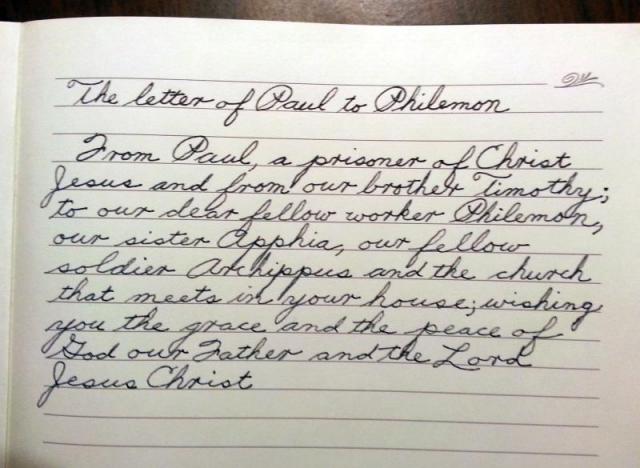 The letter of Paul to Philemon
From Paul, a prisoner of Christ
Jesus and from our brother Timothy;
to our dear fellow worker Philemon,
our sister Apphia, our fellow
soldier Archippus and the church
that meets in your house; wishing
you the grace and the peace of
God our Father and the Lord
Jesus Christ